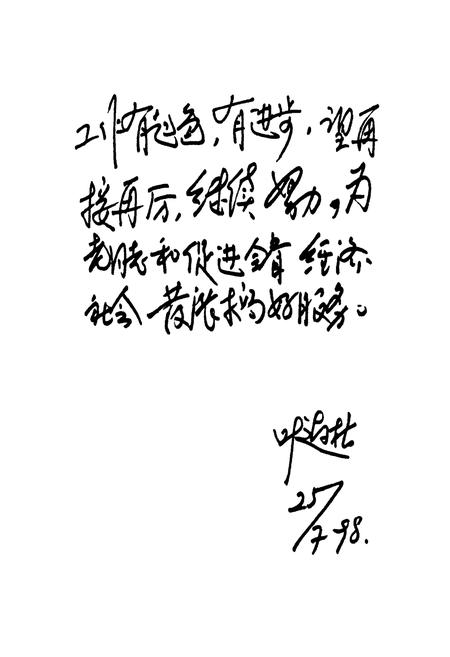 工作有起色,有进步,望再
接再厉,继续努力,为
老和促进全省经济
社会发展搞好服务。
叶连松
25/7-98.